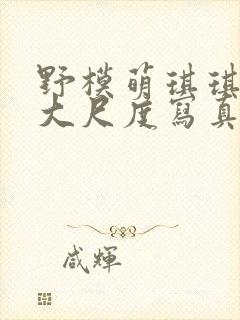 野模萌琪琪
大尺度寫真
咸輝